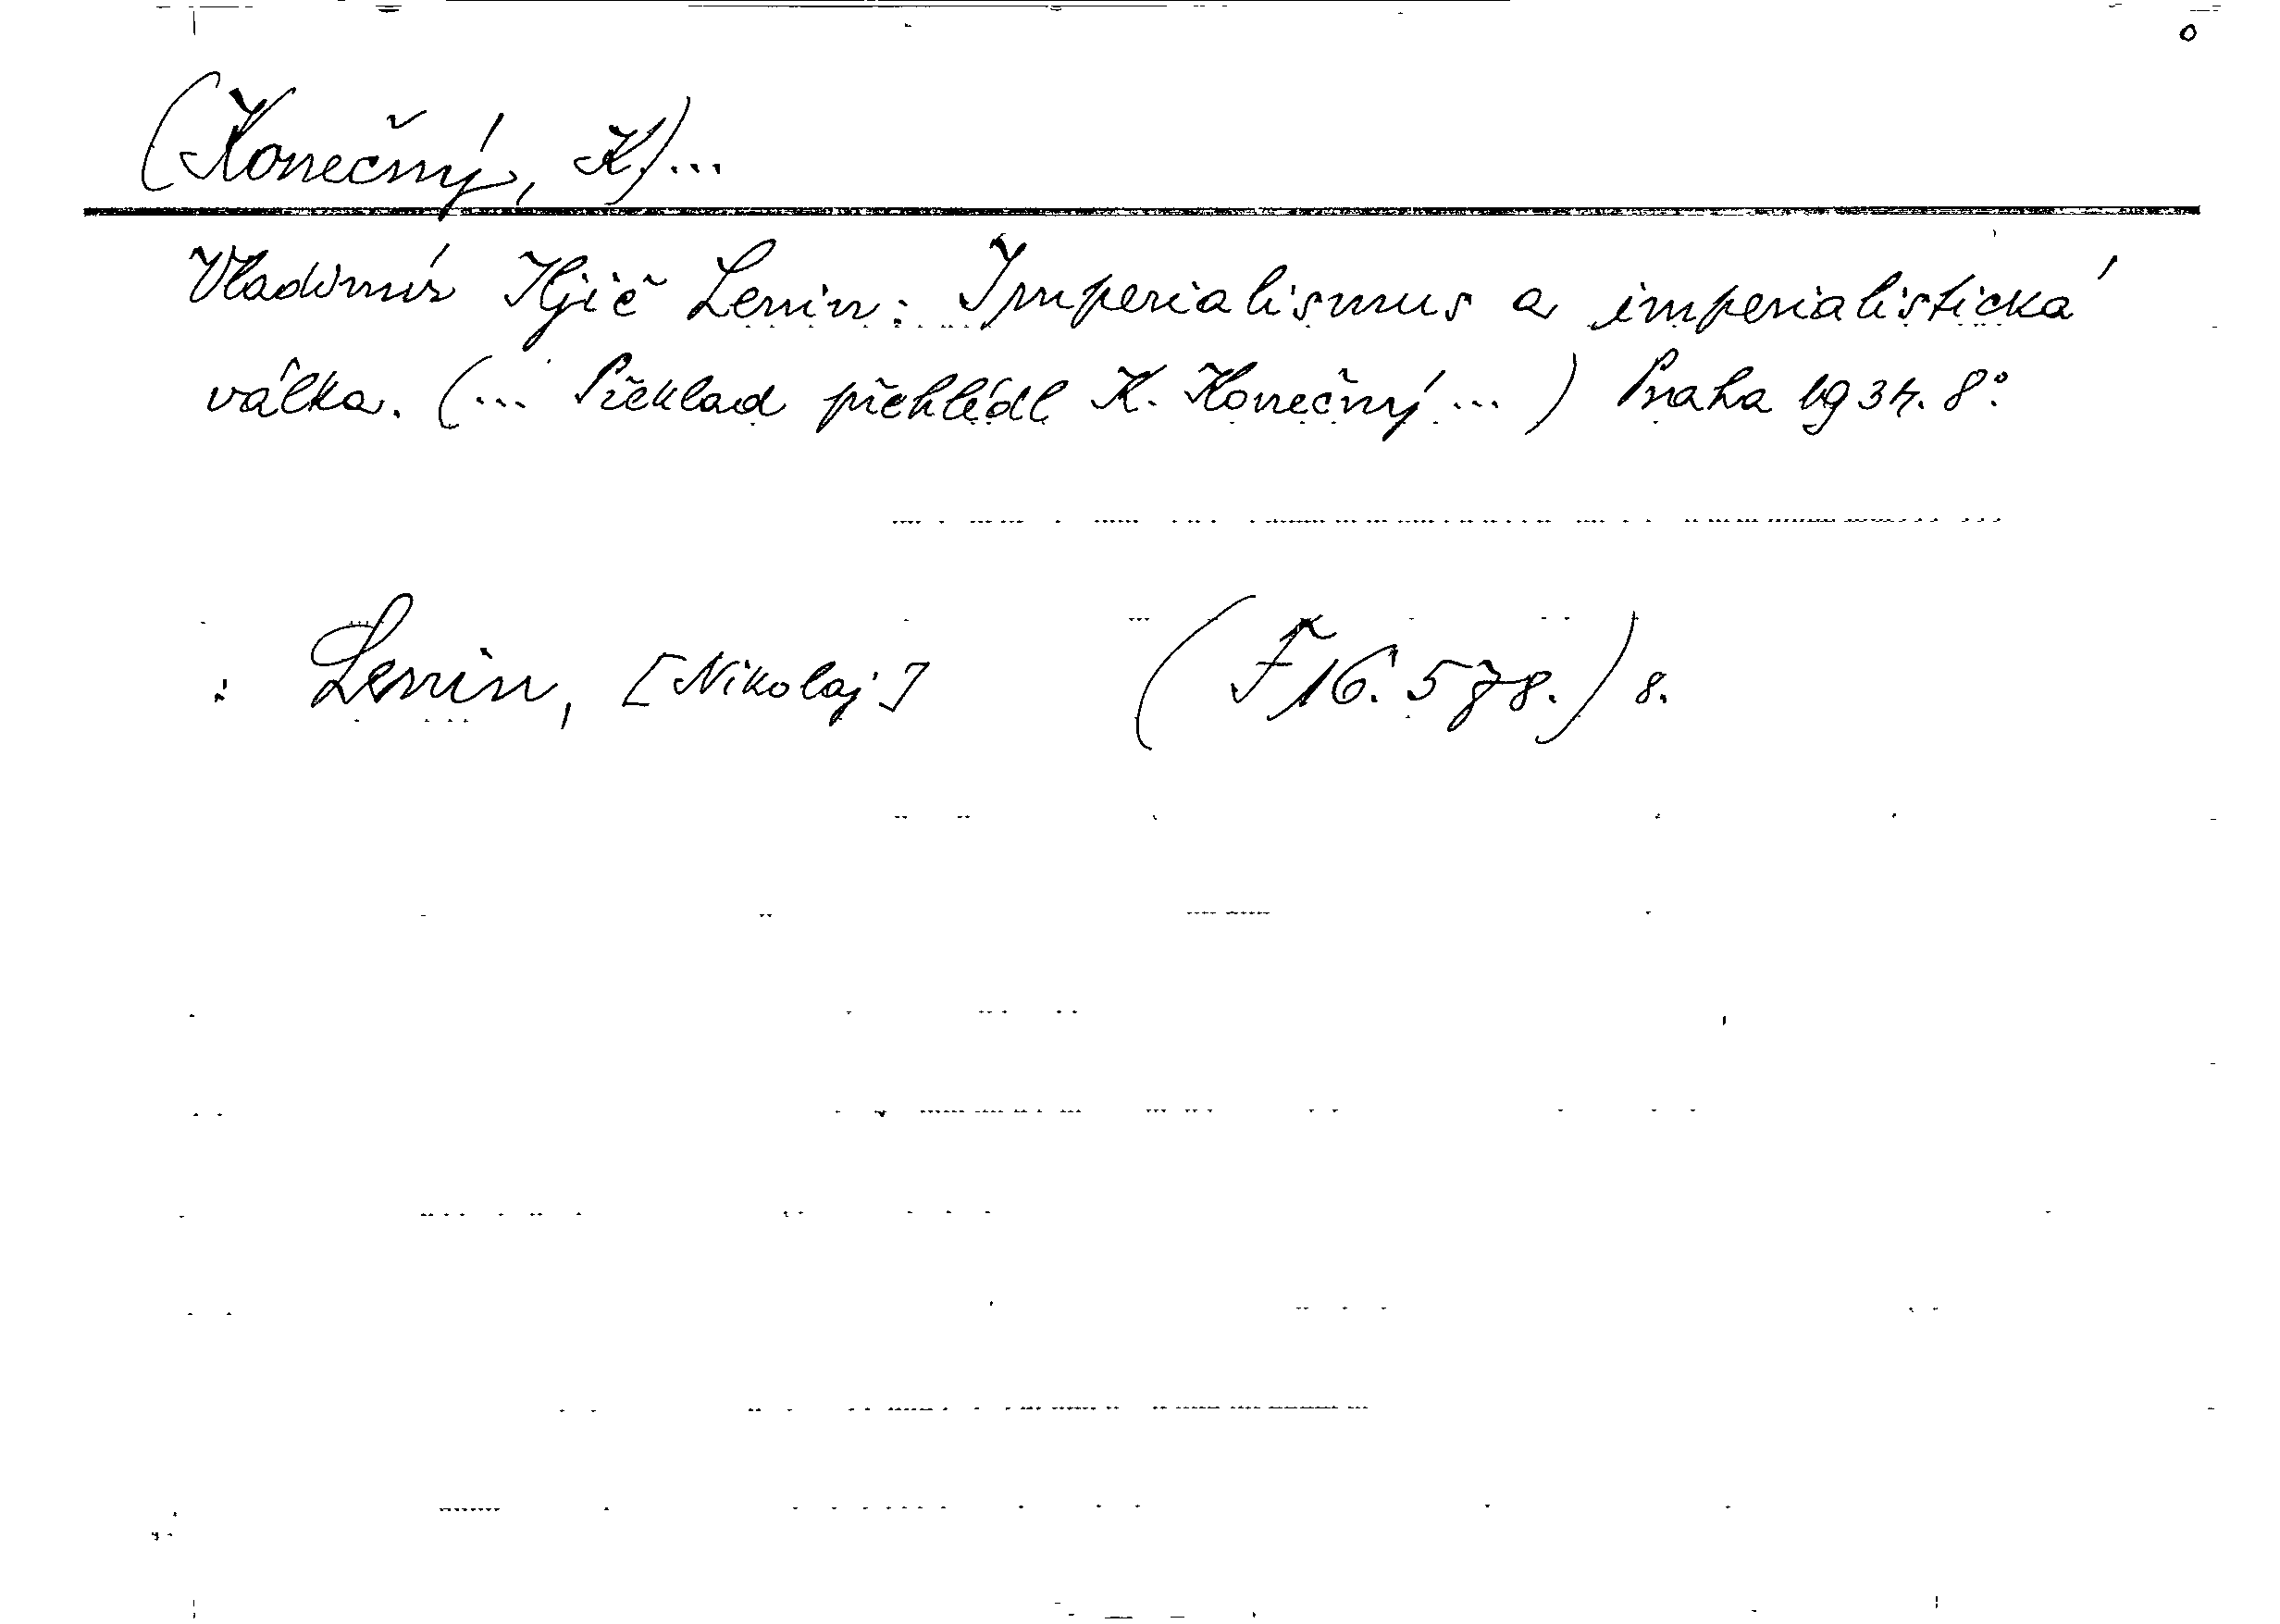 (Konečný, K.)...
Vladimír Iljič Lenin: Imperialismus a imperialistická
válka. (... Překlad přehlédl K. Konečný ...) Praha 1934. 8°.
: Lenin, [Nikolaj] (F 16.578.) 8.